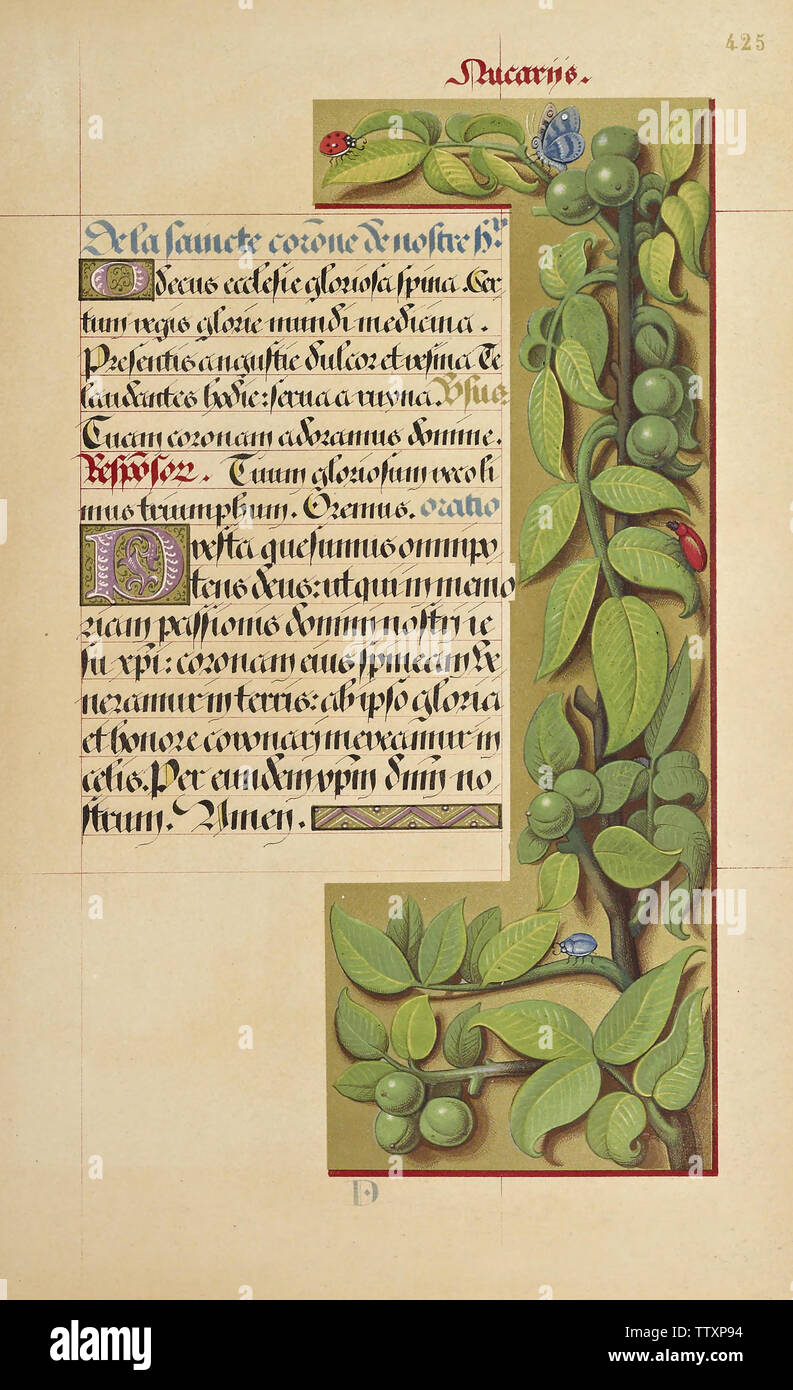 425
Nucariis.
De la saincte corōne de nostre Sr.
O decus ecclesie gloriosa spina. Cer
tum regis glorie mundi medicina.
Presentis angustie dulcor et resina Te
laudantes hodie: serua a ruyna. Vsus
Tuam coronam adoramus domine.
Respōsorz. Tuum gloriosum recoli
mus triumphum. Oremus. oratio
Presta quesumus omnipo
tens deus: ut qui in memo
riam passionis domini nostri ie
su xpi: coronam eius spineam ve
neramur in terris: ab ipso gloria
et honore coronari mereamur in
celis. Per eundem xpm dnm no
strum. Amen.
D
alamy
Image ID: TTXP94
www.alamy.com